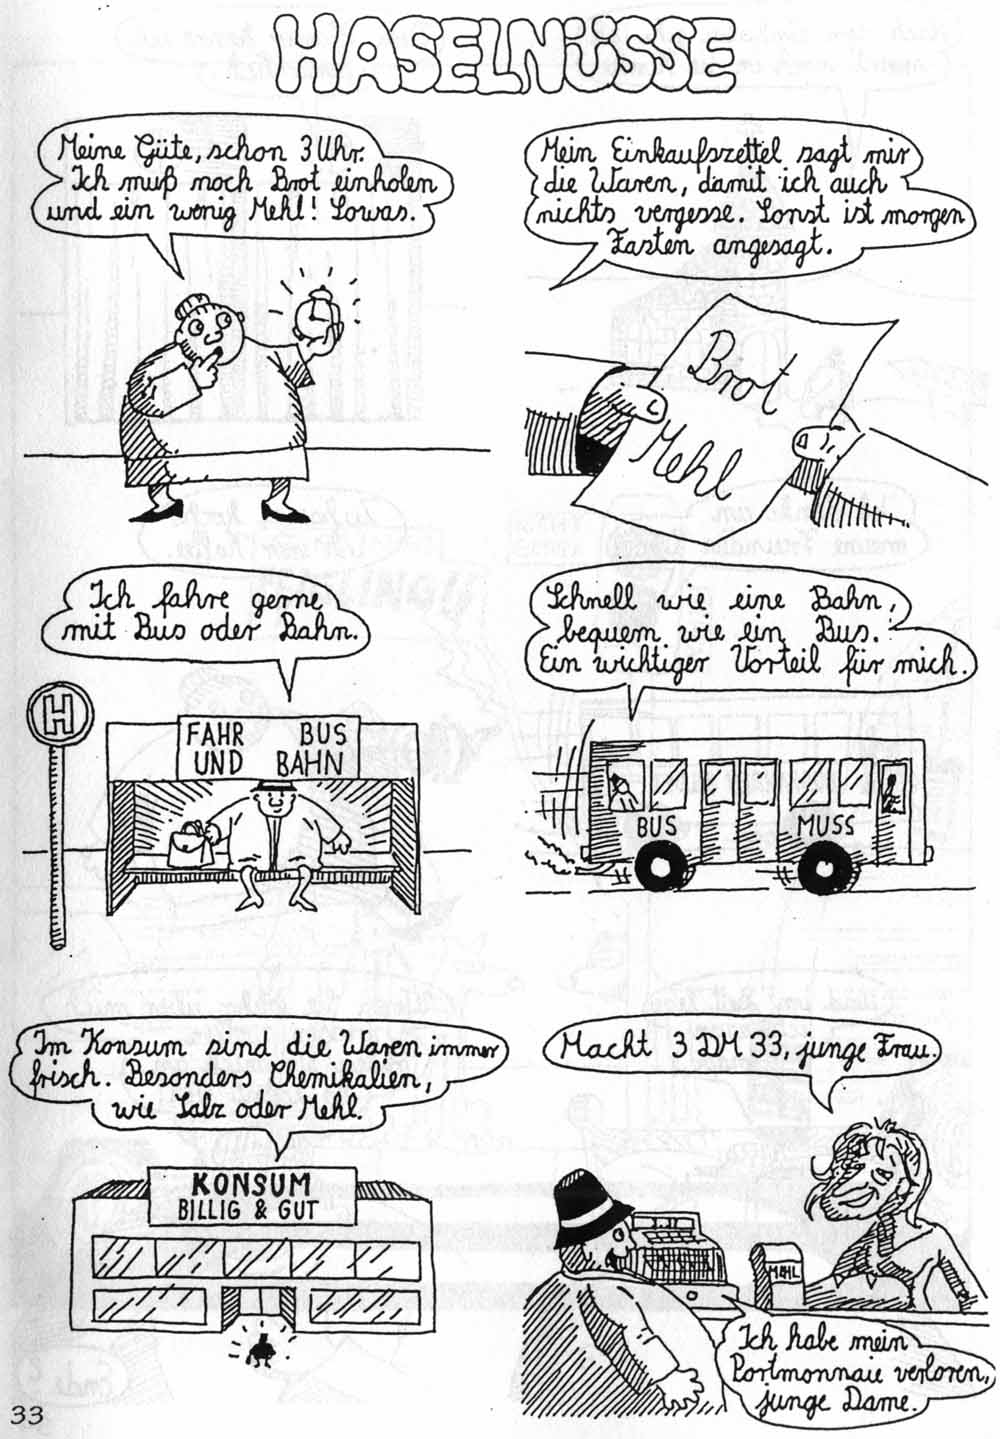 HASELNÜSSE
Meine Güte, schon 3 Uhr.
Ich muß noch Brot einholen
und ein wenig Mehl! Sowas.
Mein Einkaufszettel sagt mir
die Waren, damit ich auch
nichts vergesse. Sonst ist morgen
Fasten angesagt.
Brot
Mehl
Ich fahre gerne
mit Bus oder Bahn.
H
FAHR BUS
UND BAHN
Schnell wie eine Bahn,
bequem wie ein Bus.
Ein wichtiger Vorteil für mich.
BUS MUSS
Im Konsum sind die Waren immer
frisch. Besonders Chemikalien,
wie Salz oder Mehl.
KONSUM
BILLIG & GUT
Macht 3 DM 33, junge Frau.
MEHL
Ich habe mein
Portmonnaie verloren,
junge Dame.
33